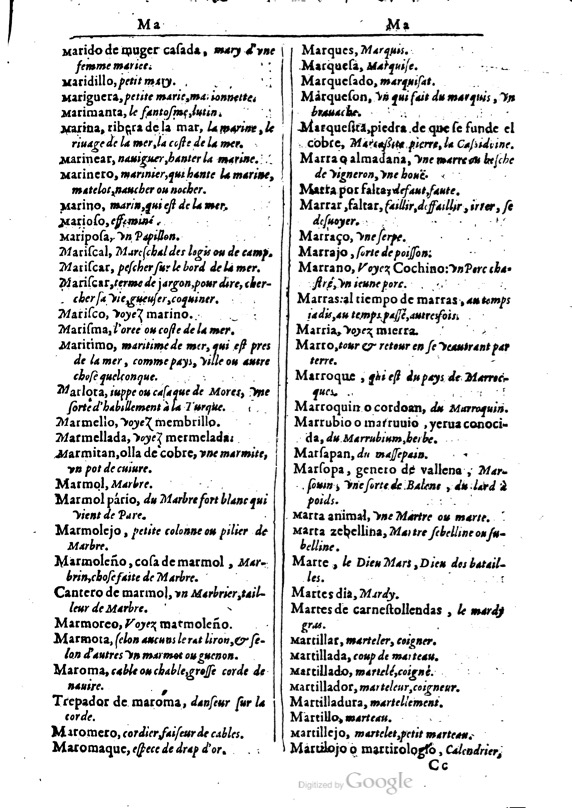 Ma
Marido de muger casada, mary d'vne
femme mariee.
Maridillo, petit mary.
Mariguera, petite marie, marionnette.
Marimanta, le fantosme, lutin.
Marina, ribera de la mar, la marine, le
riuage de la mer, la coste de la mer.
Marinear, nauiguer, hanter la marine.
Marinero, marinier, qui hante la marine,
matelot, naucher ou nocher.
Marino, marin, qui est de la mer.
Marioso, effeminé.
Mariposa, vn Papillon.
Mariscal, Mareschal des logis ou de camp.
Mariscar, pescher sur le bord de la mer.
Mariscar, terme de jargon, pour dire, cher-
cher sa vie, gueuser, coquiner.
Marisco, voyez marino.
Marisma, l'oree ou coste de la mer.
Maritimo, maritime de mer, qui est pres
de la mer, comme pays, ville ou autre
chose quelconque.
Marlota, iuppe ou casaque de Mores, vne
sorte d'habillement à la Turque.
Marmello, voyez membrillo.
Marmellada, voyez mermelada:
Marmitan, olla de cobre, vne marmite,
vn pot de cuiure.
Marmol, Marbre.
Marmol pário, du Marbre fort blanc qui
vient de Pare.
Marmolejo, petite colonne ou pilier de
Marbre.
Marmoleño, cosa de marmol, Mar-
brin, chose faite de Marbre.
Cantero de marmol, vn Marbrier, tail-
leur de Marbre.
Marmoreo, Voyez marmoleño.
Marmota, selon aucuns le rat liron, & se-
lon d'autres vn marmot ou guenon.
Maroma, cable ou chable, grosse corde de
nauire.
Trepador de maroma, danseur sur la
corde.
Maromero, cordier, faiseur de cables.
Maromaque, espece de drap d'or.
Ma
Marques, Marquis.
Marquesa, Marquise.
Marquesado, marquisat.
Marqueson, vn qui fait du marquis, vn
brauache.
Marquesita, piedra de que se funde el
cobre, Marcassite pierre, la Cassidoine.
Marra o almadana, vne marre ou besche
de vigneron, vne houë.
Marra por falta, defaut, faute.
Marrar, faltar, faillir, deffaillir, irrer, se
desuoyer.
Marraço, vne serpe.
Marrajo, sorte de poisson:
Marrano, Voyez Cochino: vn Porc cha-
stré, vn ieune porc.
Marras: al tiempo de marras, au temps
iadis, au temps passé, autresfois.
Marria, voyez mierra.
Marro, tour & retour en se veautrant par
terre.
Marroque, qui est du pays de Marroc-
ques.
Marroquin o cordoan, du Marroquin.
Marrubio o marruuio, yerua conoci-
da, du Marrubium, herbe.
Marsapan, du massepain.
Marsopa, genero de vallena, Mar-
souin, vne sorte de Balene, du lard à
poids.
Marta animal, vne Martre ou marte.
Marta zebellina, Martre sebelline ou su-
belline.
Marte, le Dieu Mars, Dieu dos batail-
les.
Martes dia, Mardy.
Martes de carnestollendas, le mardy
gras.
Martillar, marteler, coigner.
Martillada, coup de marteau.
Martillado, martelé, coigné.
Martillador, marteleur, coigneur.
Martilladura, martellement.
Martillo, marteau.
Martillejo, martelet, petit marteau.
Martilojo o martirologio, Calendrier,
Cc
Digitized by Google